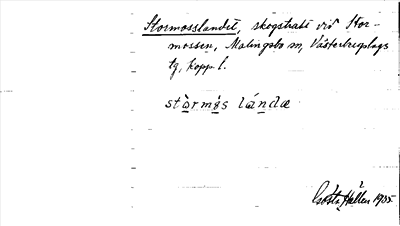 Stormosslandet, skogstrakt vid Stor-
mossen, Malingsbo sn, Västerbergslags
tg, Kopp. l.
stòrmós lándæ
Gösta Hallén 1935